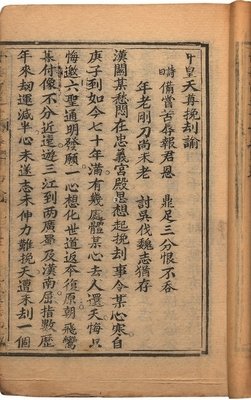 皇天再挽刼諭
詩曰 備嘗苦辱報君恩 鼎足三分恨不吞
年老剛刀尚未老 討吳伐魏志猶存
漢關某愁悶在忠義宮殿思想起挽刼事令某心寒自
庚子到如今七十年滿有幾體某心去人還天悔只
悔邀六聖通明發願一心想化世道返夲復原朝飛鸞
暮付像不分近遠遊三江到兩廣及漢南屈指數歷
年來刼運減半心未遂志未伸力難挽天遭末刼一個